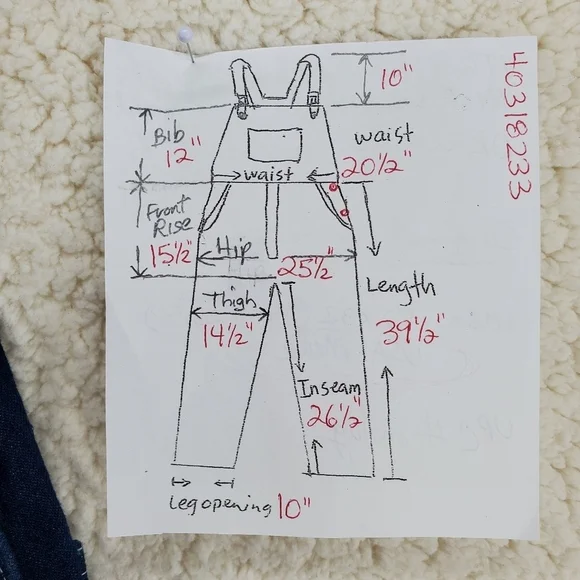 40318233
10"
Bib
12"
waist
20½"
waist
Front
Rise
15½"
Hip
25½"
Length
39½"
Thigh
14½"
Inseam
26½"
Leg opening 10"